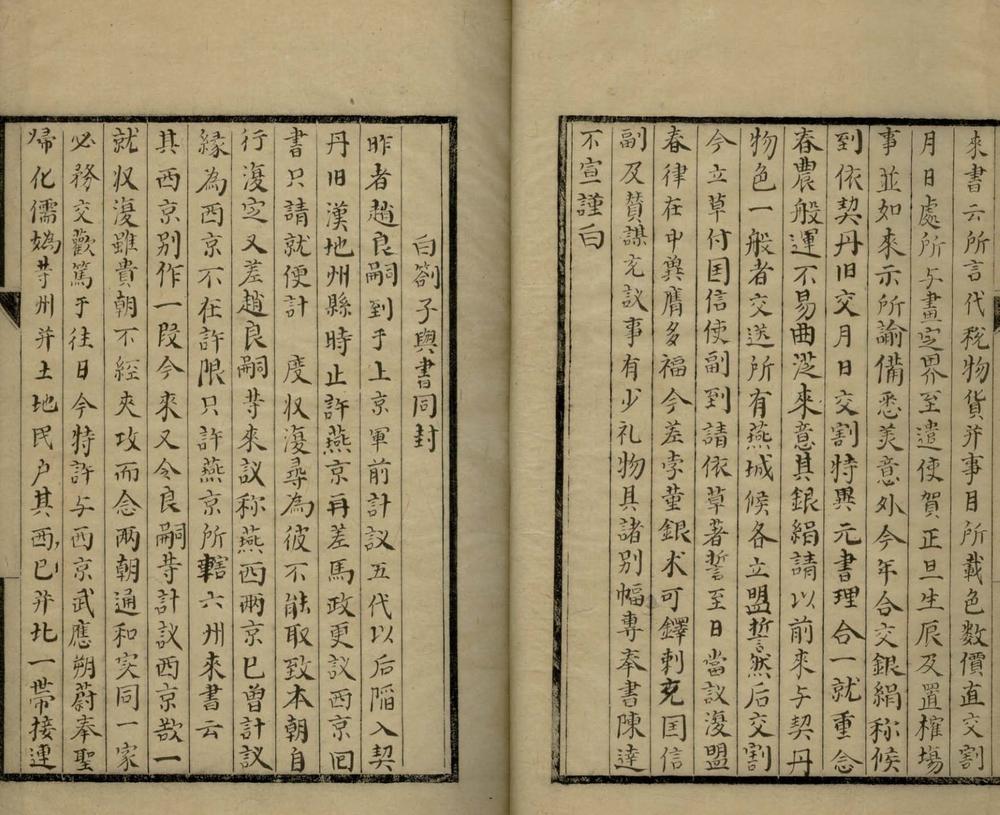 來書云所言代税物貨并事目所載色数價直交割
月日處所与畫定界至遣使賀正旦生辰及置榷塲
事並如來示所諭備悉美意外今年合交銀絹称候
到依契丹旧交月日交割特異元書理合一就重念
春農般運不易曲從來意其銀絹請以前來与契丹
物色一般者交送所有燕城候各立盟誓然后交割
今立草付囯信使副到請依草著誓至日當議復盟
春律在中兾膺多福今差孛菫銀术可鐸剌充囯信
副及賛謀充議事有少礼物具諸别幅專奉書陳達
不宣謹白
白劄子與書同封
昨者趙良嗣到于上京軍前計議五代以后陥入契
丹旧漢地州縣時止許燕京再差馬政更議西京囘
書只請就便計 度収復尋為彼不能取致本朝自
行復定又差趙良嗣䓁來議称燕西兩京已曾計議
縁為西京不在許限只許燕京所轄六州來書云
其西京别作一叚今來又令良嗣䓁計議西京欲一
就収復雖貴朝不經夾攻而念兩朝通和实同一家
必務交歡篤于往日今特許与西京武應朔蔚奉聖
歸化儒媯䓁州并土地民户其西已并北一帶接連